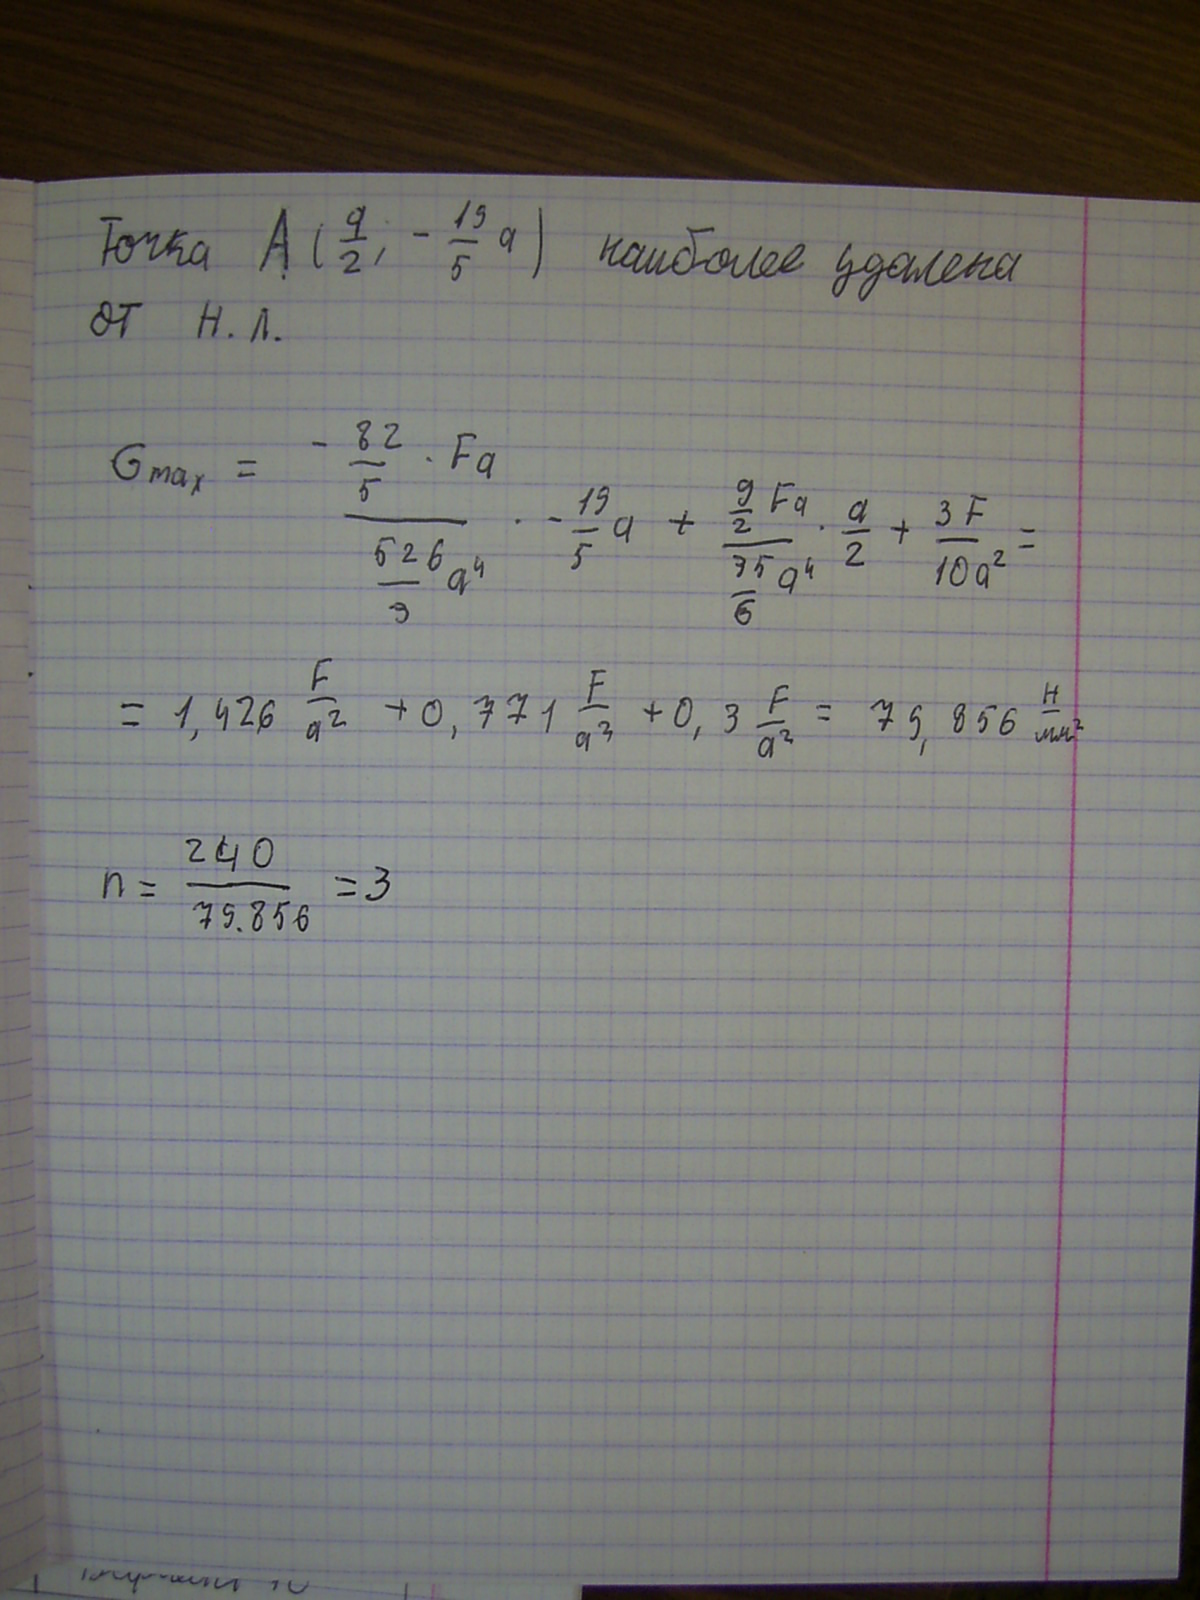 Точка A (a/2; - 19/5 a) наиболее удалена
от н.л.
σmax = (- 82/5 · Fa)/(526/3 a⁴) · - 19/5 a + (9/2 Fa)/(35/6 a⁴) · a/2 + 3F/10a² =
= 1,426 F/a² + 0,771 F/a² + 0,3 F/a² = 79,856 Н/мм²
n = 240/79.856 = 3